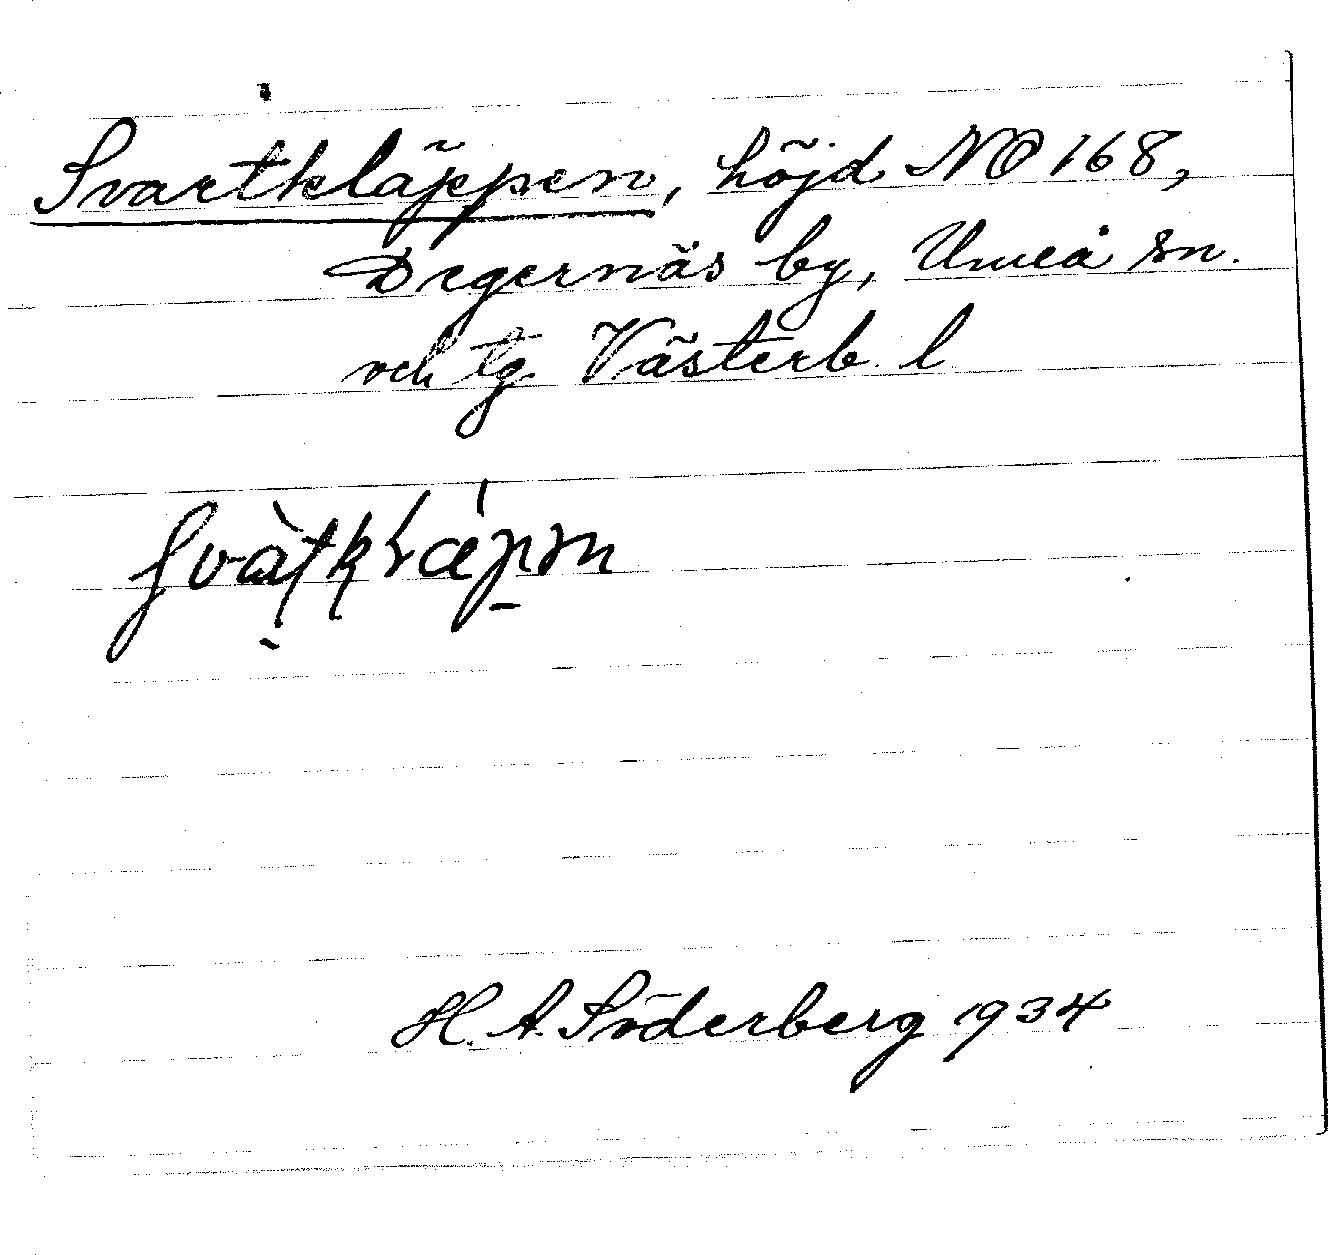 Svartkläppen, höjd NO 168,
Degernäs by, Umeå sn.
och tg. Västerb. l
H. A. Söderberg 1934